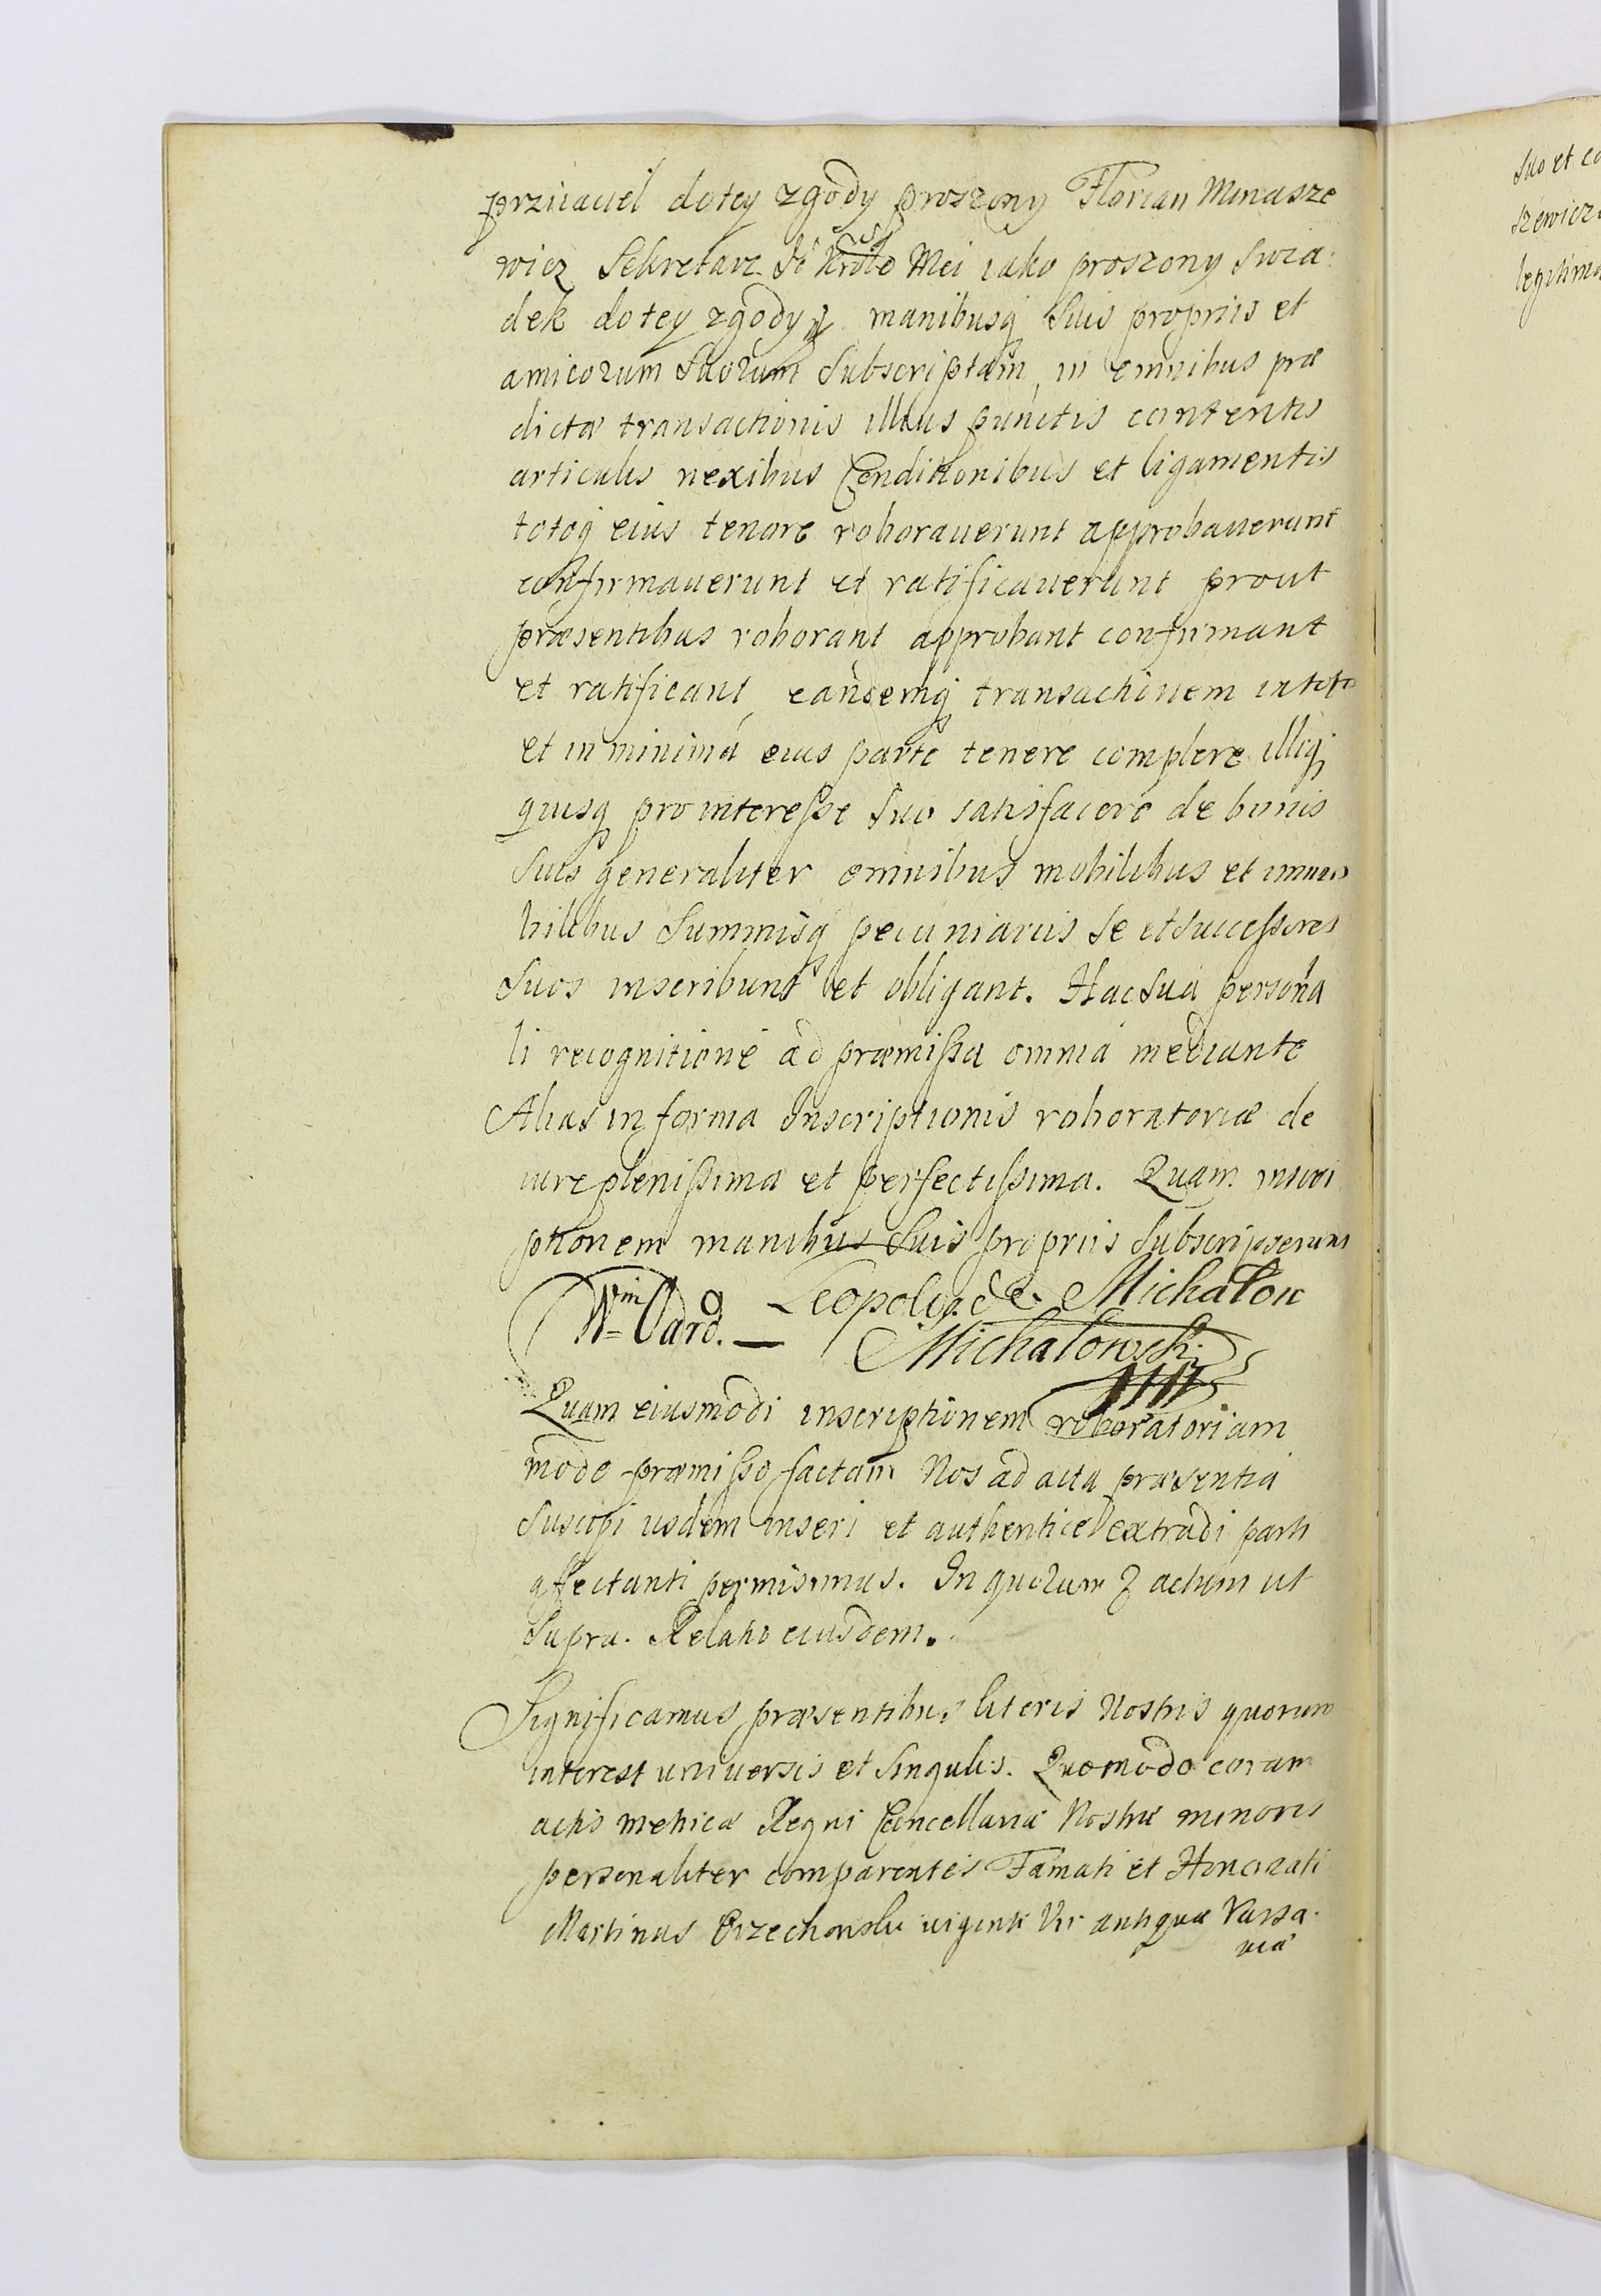 przuaciel do tey zgody proszony Florian Minasze
wicz Sekretarz Je Kro Mci iako proszony Swia
dek do tey zgody manibusq suis propriis et
amicorum suorum subscriptam, in omnibus præ
dictæ transactionis illius punctis contentis
articulis nexibus Conditionibus et ligamentis
totoq eius tenore roborauerunt approbauerunt
confirmauerunt et ratificauerunt prout
præsentibus roborant approbant confirmant
et ratificant, eandemq transactionem in toto
et in minima eius parte tenere complere illiq
quisq pro interesse suo satisfacere de bonis
suis generaliter omnibus mobilibus et immo
bilibus summisq pecuniariis se et successores
suos inscribunt et obligant. Hac sua persona
li recognitione ad præmissa omnia mediante
Alias in forma Inscriptionis roboratoriæ de
iure plenissima et perfectissima. Quam inscri
ptionem manibus suis propriis subscripserunt
Leopol de Michałow
Michałowski
Quam eiusmodi inscriptionem roboratoriam
modo præmisso factam Nos ad acta præsentia
suscipi iisdem inseri et authentice extradi parti
affectanti permisimus. In quorum actum ut
supra. Relatio eiusdem.
Significamus præsentibus literis Nostris quorum
interest universis et singulis. Quomodo coram
actis metricæ Regni Cancellariæ Nostræ minoris
personaliter comparentes Famati et Honorati
Martinus Orzechowski uiginti Vir antiquæ Varsa
uiæ
suo et co
szewicz
legitima